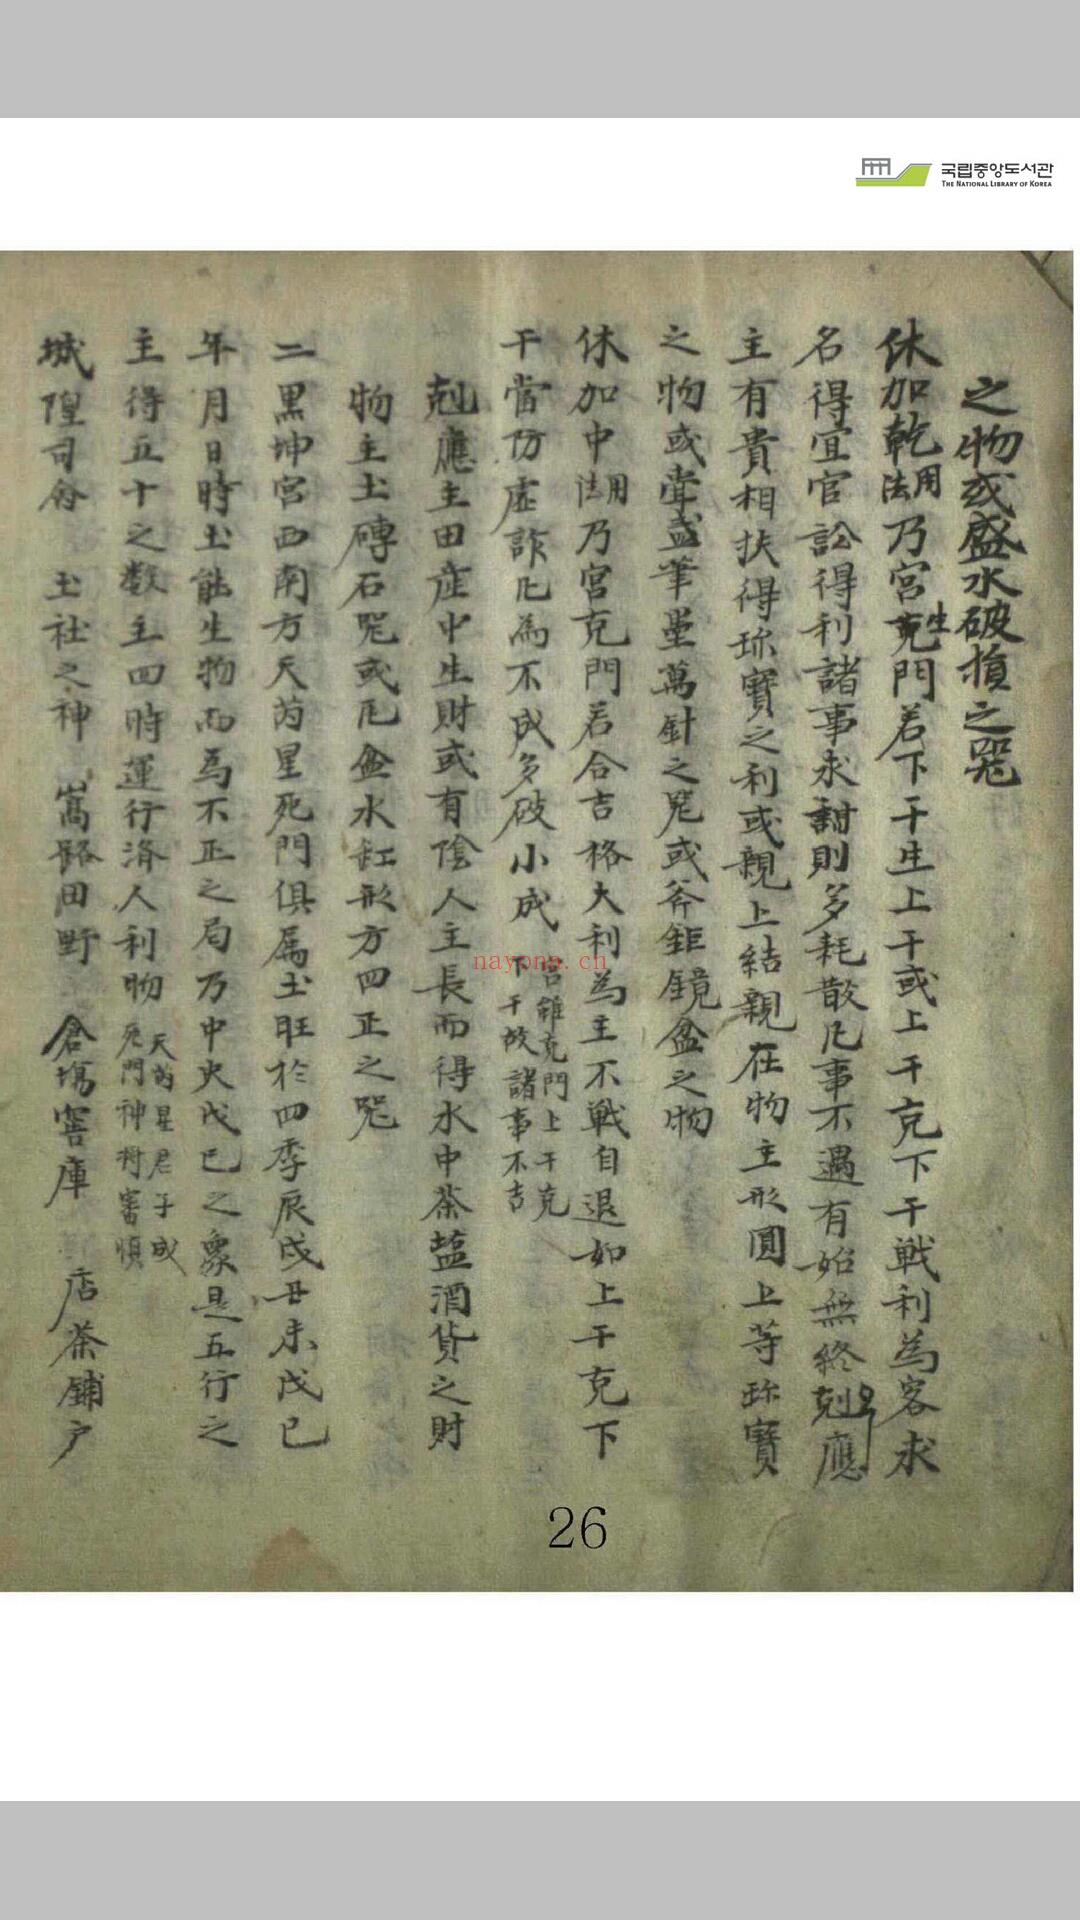 국립중앙도서관
THE NATIONAL LIBRARY OF KOREA
之物或盛水破損之器
休加乾用法乃宮生克門若下干生上干或上干克下干戦利為客求
名得宜官訟得利諸事求謀則多耗散凡事不遇有始無終剋應
主有貴相扶得珎寶之利或親上結親在物主形圓上等珎寶
之物或甞盞筆墨萬針之器或斧鉅鏡盆之物
休加中用法乃宮克門若合吉格大利為主不戦自退如上干克下
干當防虛詐凡為不成多破小成 宮雖克門上干克
下干故諸事不吉
剋應主田產中生財或有陰人主長而得水中茶塩酒貨之財
物主土磚石器或瓦盆水缸形方四正之器
二黒坤宮西南方天芮星死門俱属土旺於四季辰戌丑未戊己
年月日時土能生物而為不正之局乃中央戊己之象是五行之
主得五十之数主四時運行済人利物 天芮星君子成
死門神将審慎
城隍司命 土社之神 嵩路田野 倉塲窖庫 店茶鋪户
nayona.cn
26